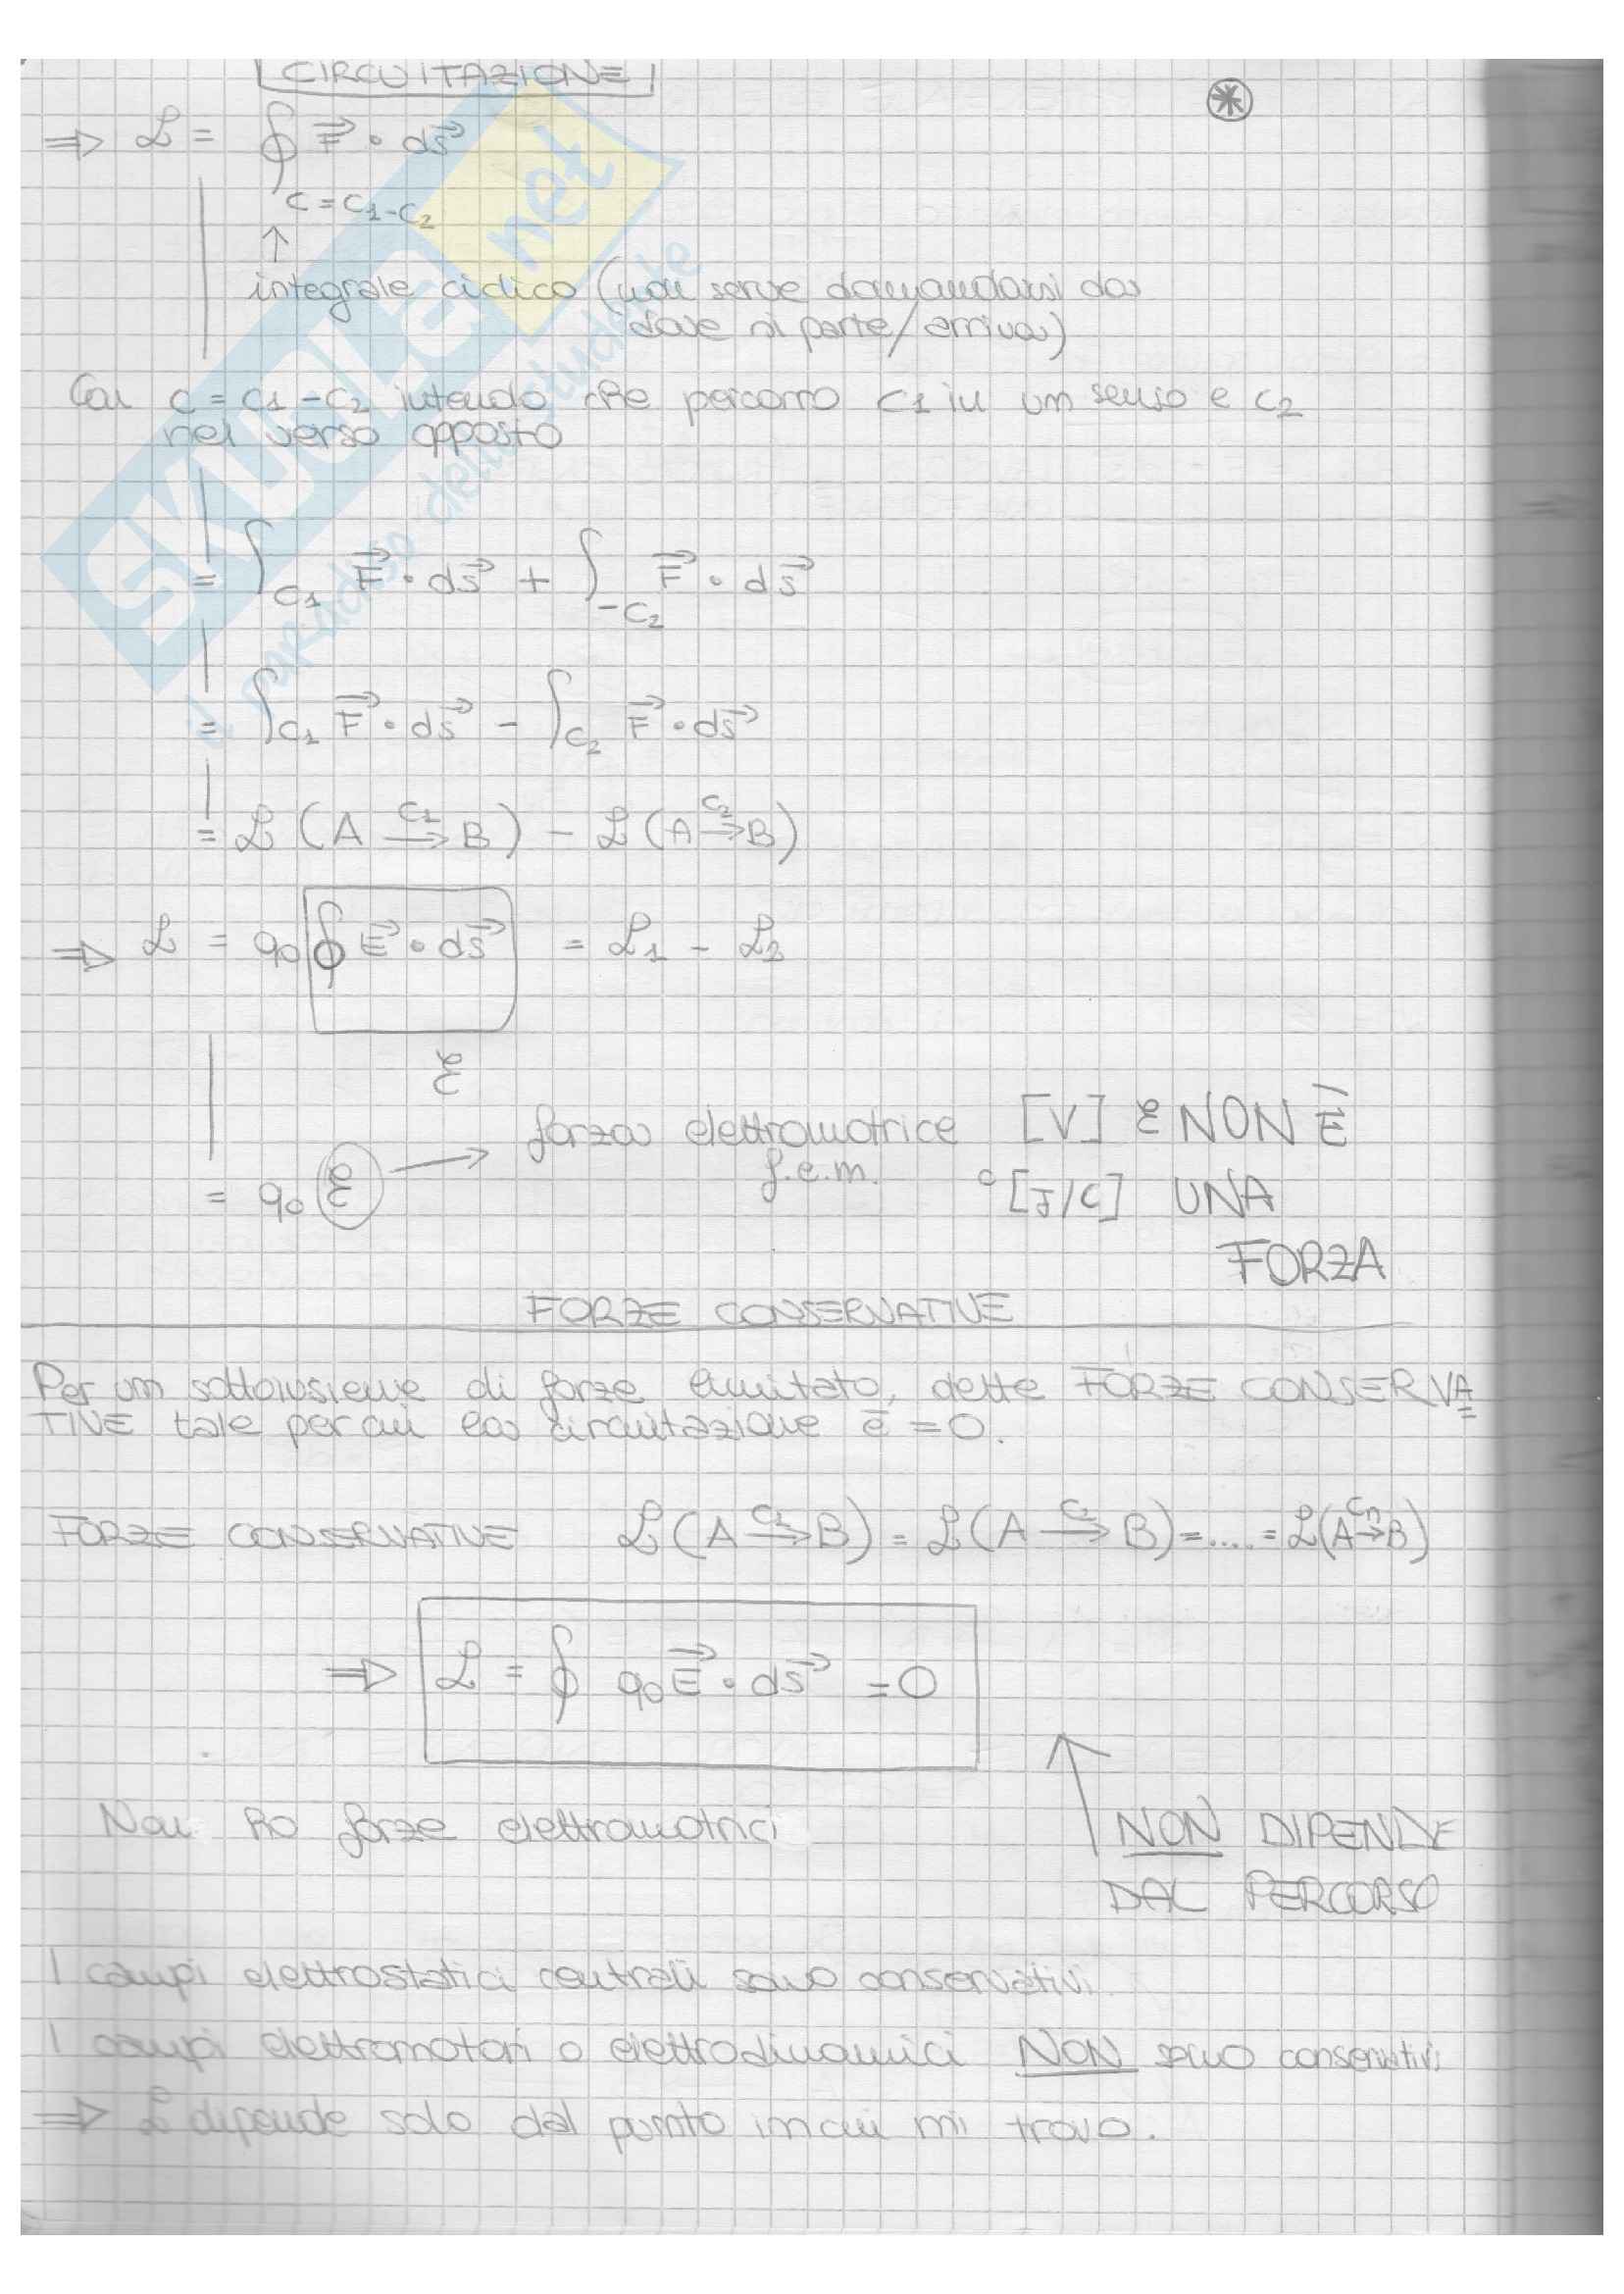 CIRCUITAZIONE
⊛
⇒ ℒ = ∮ F⃗ • ds⃗
C = C1-C2
↑
integrale ciclico (non serve domandarsi da
dove si parte/arriva)
Con C = C1 - C2 intendo che percorro C1 in un senso e C2
nel verso opposto
= ∫C1 F⃗ • ds⃗ + ∫-C2 F⃗ • ds⃗
= ∫C1 F⃗ • ds⃗ - ∫C2 F⃗ • ds⃗
= ℒ (A C1→ B) - ℒ (A C2→ B)
⇒ ℒ = q0 ∮ E⃗ • ds⃗ = ℒ1 - ℒ2
ℰ
= q0 ℰ → forza elettromotrice [V] ℰ NON È
f.e.m. o [J/C] UNA
FORZA
FORZE CONSERVATIVE
Per un sottoinsieme di forze limitato, dette FORZE CONSERVA
TIVE tale per cui la circuitazione è = 0.
FORZE CONSERVATIVE ℒ (A C1→ B) = ℒ (A C2→ B) = .... = ℒ (A Cn→ B)
⇒ ℒ = ∮ q0 E⃗ • ds⃗ = 0
Non ho forze elettromotrici
NON DIPENDE
DAL PERCORSO
I campi elettrostatici centrali sono conservativi.
I campi elettromotori o elettrodinamici NON sono conservativi
⇒ ℒ dipende solo dal punto in cui mi trovo.
SKUOLA.net
il paradiso dello studente